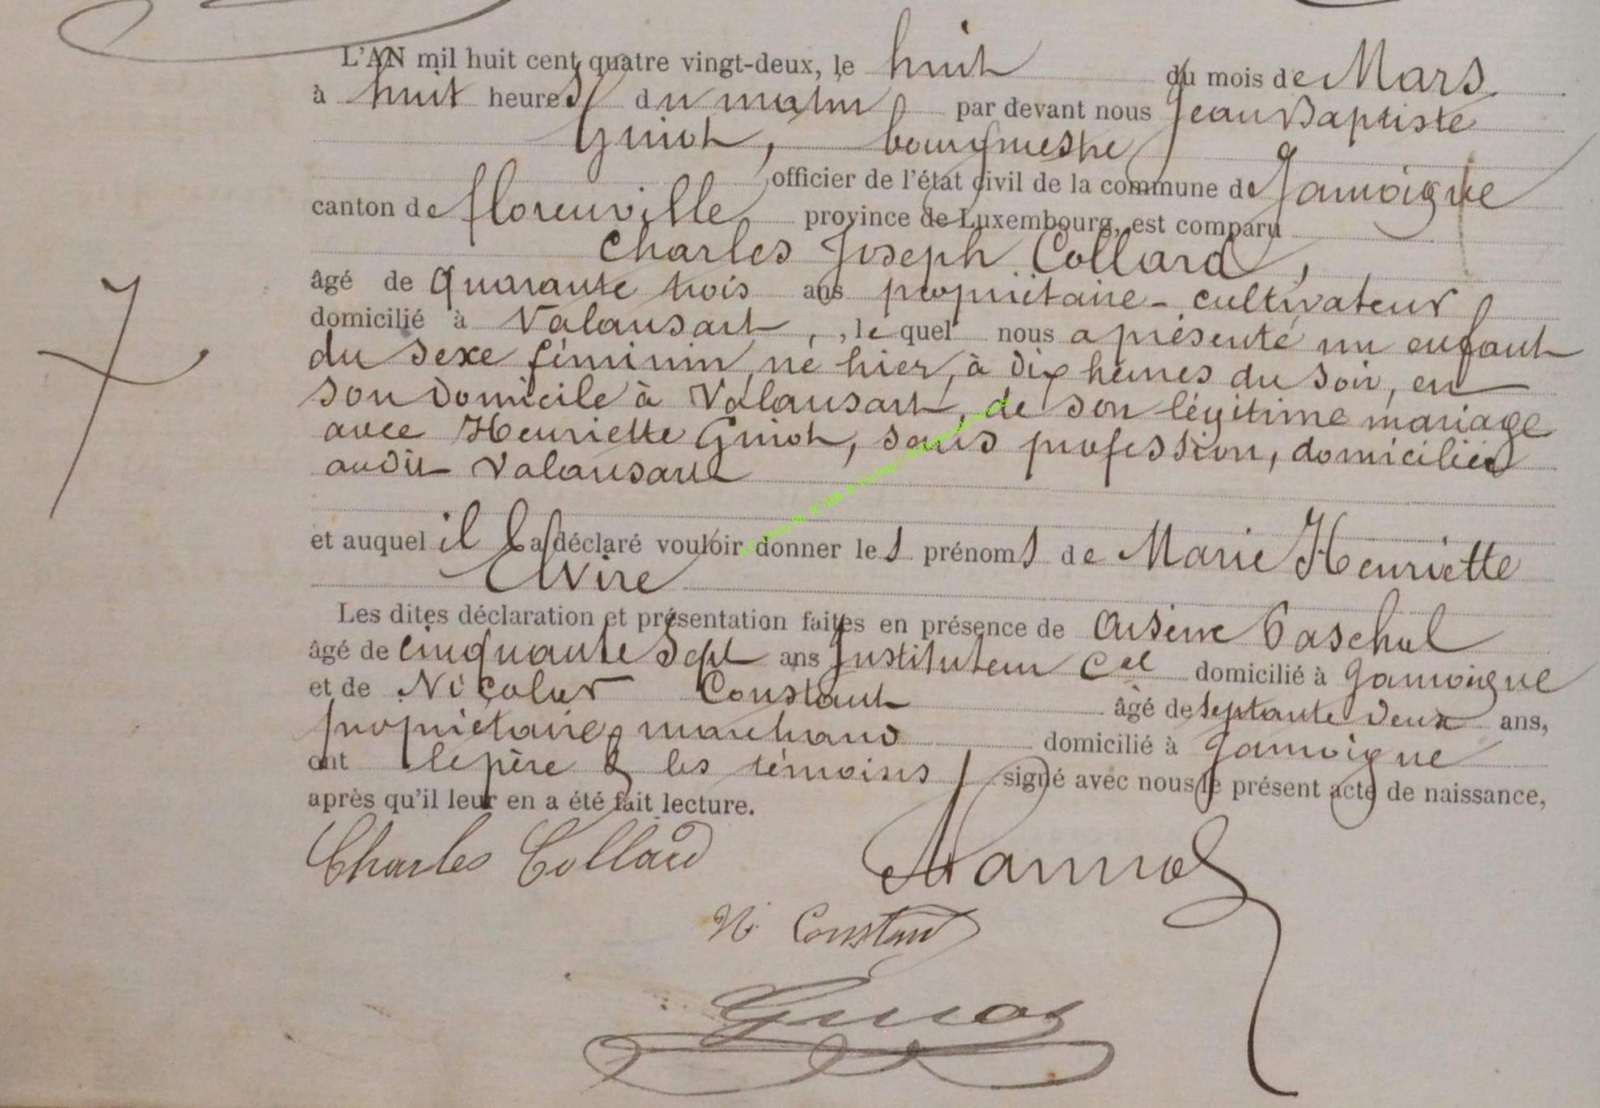 L'AN mil huit cent quatre vingt-deux, le huit du mois de Mars
à huit heures du matin par devant nous Jean Baptiste
Guiot, bourgmestre
officier de l'état civil de la commune de Jamoigne
canton de florenville, province de Luxembourg, est comparu
Charles Joseph Collard,
âgé de quarante trois ans propriétaire - cultivateur
domicilié à Valansart, , le quel nous a présenté un enfant
du sexe féminin, né hier, à dix heures du soir, en
son domicile à Valansart, de son légitime mariage
avec Henriette Guiot, sans profession, domiciliée
audit Valansart
et auquel il a déclaré vouloir donner les prénoms de Marie Henriette
Elvire
Les dites déclaration et présentation faites en présence de Arsène
âgé de cinquante sept ans Instituteur Cal domicilié à Jamoigne
et de Nicolas Constant âgé de septante deux ans,
propriétaire & marchand domicilié à Jamoigne
ont le père & les témoins signé avec nous le présent acte de naissance,
après qu'il leur en a été fait lecture.
Charles Collard
N. Constant
Guiot
7